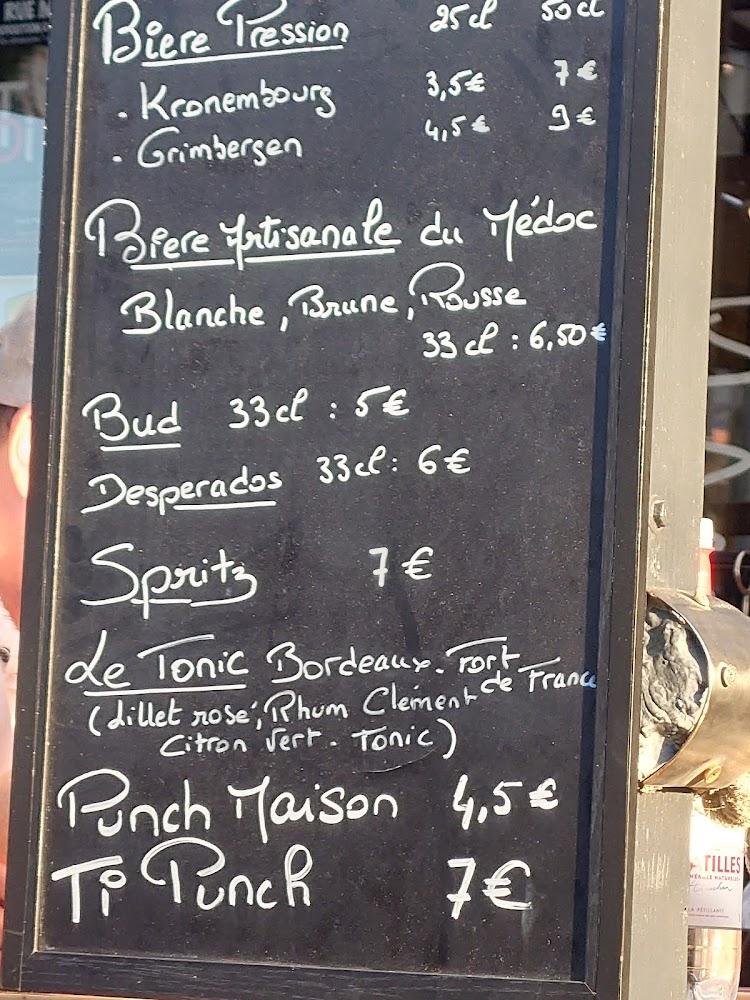 RUE
Biere Pression 25cl 50cl
. Kronembourg 3,5€ 7€
. Grimbergen 4,5€ 9€
Biere Artisanale du Médoc
Blanche, Brune, Rousse
33cl : 6,50€
Bud 33cl : 5€
Desperados 33cl : 6€
Spritz 7€
Le Tonic Bordeaux. Fort
de France
(Lillet rosé, Rhum Clément
Citron Vert. Tonic)
Punch Maison 4,5€
Ti Punch 7€
TILLES